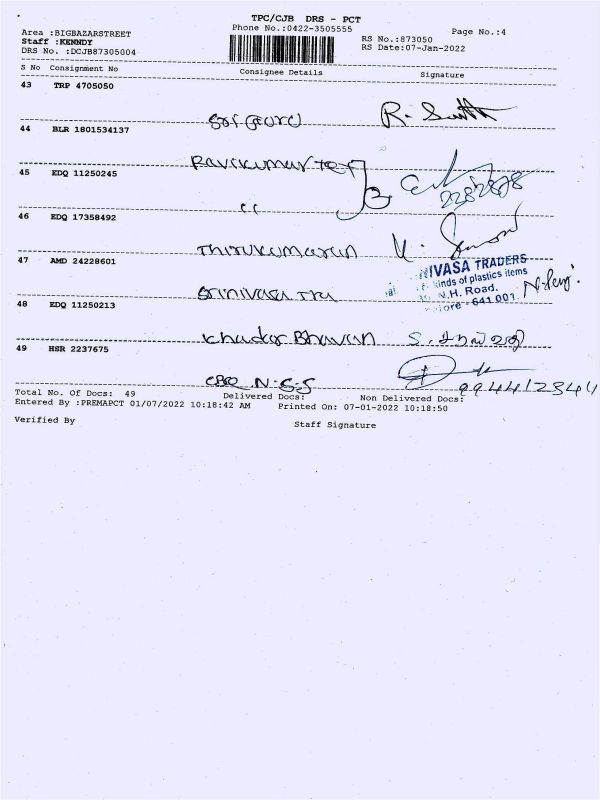 TPC/CJB DRS - PCT
Phone No.:0422-3505555
Area :BIGBAZARSTREET
Staff :KENNDY
DRS No. :DCJB87305004
RS No.:873050
RS Date:07-Jan-2022
Page No.:4
S No Consignment No Consignee Details Signature
43 TRP 4705050
Sri Guru
44 BLR 1801534137
Ravikumar Tex
45 EDQ 11250245
46 EDQ 17358492
Thirukumaran
47 AMD 24228601
IVASA TRADERS
kinds of plastics items
N.H. Road.
ore - 641 001
Srinivasa Tra
48 EDQ 11250213
Khadar Bhavan
49 HSR 2237675
N.S.S
9944412344
Total No. Of Docs: 49 Delivered Docs: Non Delivered Docs:
Entered By :PREMAPCT 01/07/2022 10:18:42 AM Printed On: 07-01-2022 10:18:50
Verified By Staff Signature